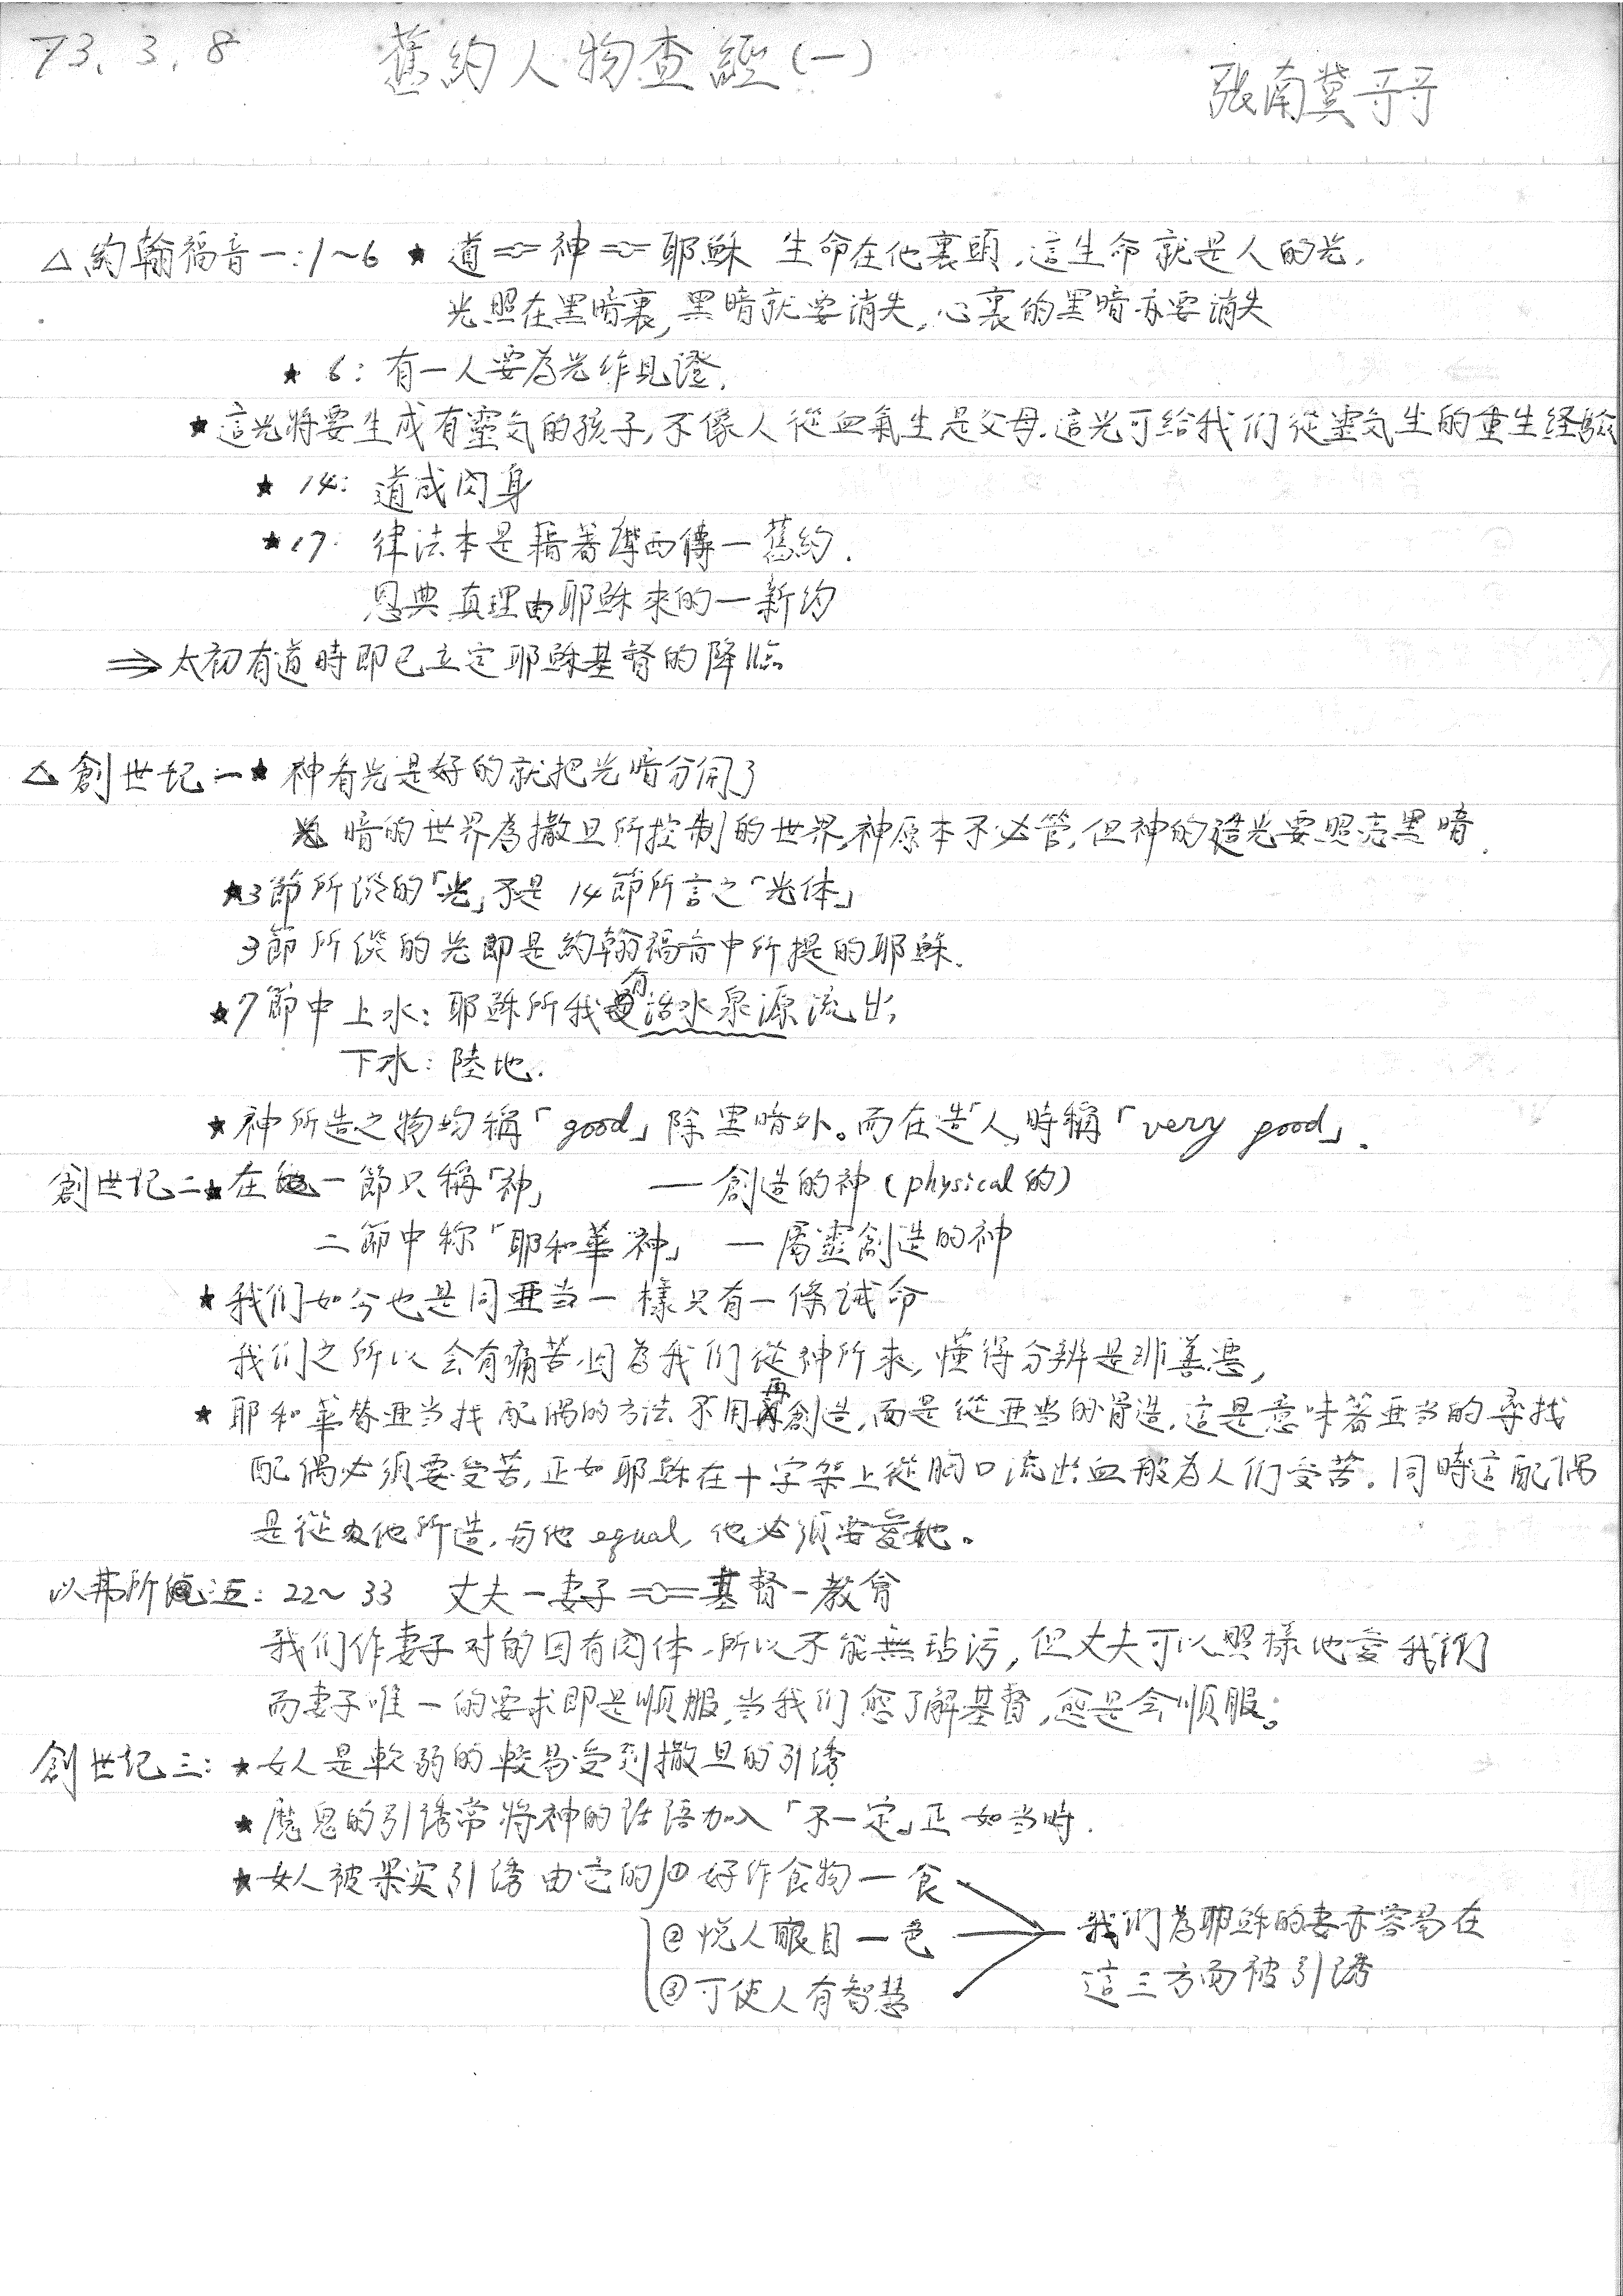 73. 3. 8 舊約人物查經(一) 張南冀哥哥
△約翰福音一:1~6 ★ 道==神==耶穌 生命在他裏頭,這生命就是人的光.
光照在黑暗裏,黑暗就要消失,心裏的黑暗亦要消失
★ 6: 有一人要為光作見證.
★這光將要生成有靈气的孩子,不像人從血氣生是父母.這光可給我们從靈气生的重生経驗
★ 14: 道成肉身
★17: 律法本是藉着摩西傳一舊約.
恩典真理由耶穌來的一新約
⇒太初有道時即已立定耶穌基督的降臨
△創世纪一★ 神看光是好的就把光暗分開了
暗的世界為撒旦所控制的世界,神原本不必管,但神的造光要照亮黑暗.
★3節所從的「光」不是 14節所言之「光体」
3節所從的光即是約翰福音中所提的耶穌.
★7節中上水: 耶穌所我有活水泉源流出,
下水: 陸地.
★神所造之物均稱「good」除黑暗外。而在造「人」時稱「very good」.
創世纪二★在一節只稱「神」 — 創造的神(physical的)
二節中称「耶和華神」 — 屬靈創造的神
★我们如今也是同亜当一樣只有一條诫命
我们之所以会有痛苦因為我们從神所來,懂得分辨是非善惡,
★ 耶和華替亜当找配偶的方法不用再創造,而是從亜当的骨造.這是意味著亜当的尋找
配偶必須要受苦,正如耶穌在十字架上從胸口流出血般為人们受苦.同時這配偶
是從他所造,与他equal,他必須要愛她。
以弗所五: 22~33 丈夫一妻子==基督一教會
我们作妻子对的因有肉体,所以不能無玷污,但丈夫可以照樣地愛我们
而妻子唯一的要求即是順服,当我们愈了解基督,愈是会順服。
創世纪三: ★女人是軟弱的較易受到撒旦的引誘
★魔鬼的引誘常將神的话語加入「不一定」正如当時.
★女人被果实引誘由它的 ①好作食物一食
②悦人眼目一色 我们為耶穌的妻亦容易在
③可使人有智慧 這三方面被引誘